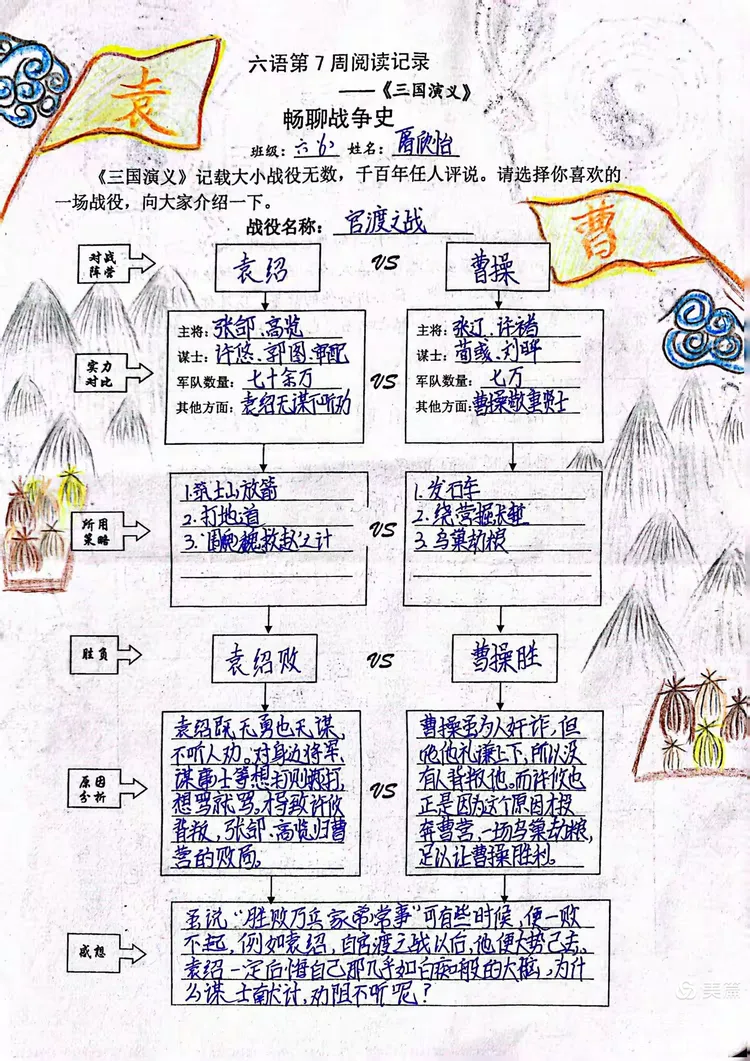 六语第7周阅读记录
——《三国演义》
畅聊战争史
袁
班级：六 姓名：欣怡
《三国演义》记载大小战役无数，千百年任人评说。请选择你喜欢的
一场战役，向大家介绍一下。
战役名称：官渡之战
曹
对战
阵营
袁绍
VS
曹操
实力
对比
主将：张郃、高览
谋士：许攸、郭图、审配
军队数量：七十余万
其他方面：袁绍无谋不听劝
VS
主将：张辽、许褚
谋士：荀彧、刘晔
军队数量：七万
其他方面：曹操敬重贤士
所用
策略
1.筑土山放箭
2.打地道
3.围魏救赵之计
VS
1.发石车
2.绕营掘长堑
3.乌巢劫粮
胜负
袁绍败
VS
曹操胜
原因
分析
袁绍既无勇也无谋，
不听人劝。对身边将军、
谋士等想打则打，
想骂就骂。导致许攸
背叛，张郃、高览归曹
营的败局。
VS
曹操虽为人奸诈，但
他礼谦上下，所以没
有人背叛他。而许攸也
正是因为这个原因才投
奔曹营，一场乌巢劫粮，
足以让曹操胜利。
感想
虽说“胜败乃兵家常事”可有些时候，便一败
不起，例如袁绍，自官渡之战以后，他便大势已去。
袁绍一定后悔自己那几乎如白痴般的大脑，为什
么谋士献计，劝阻不听呢？
美篇